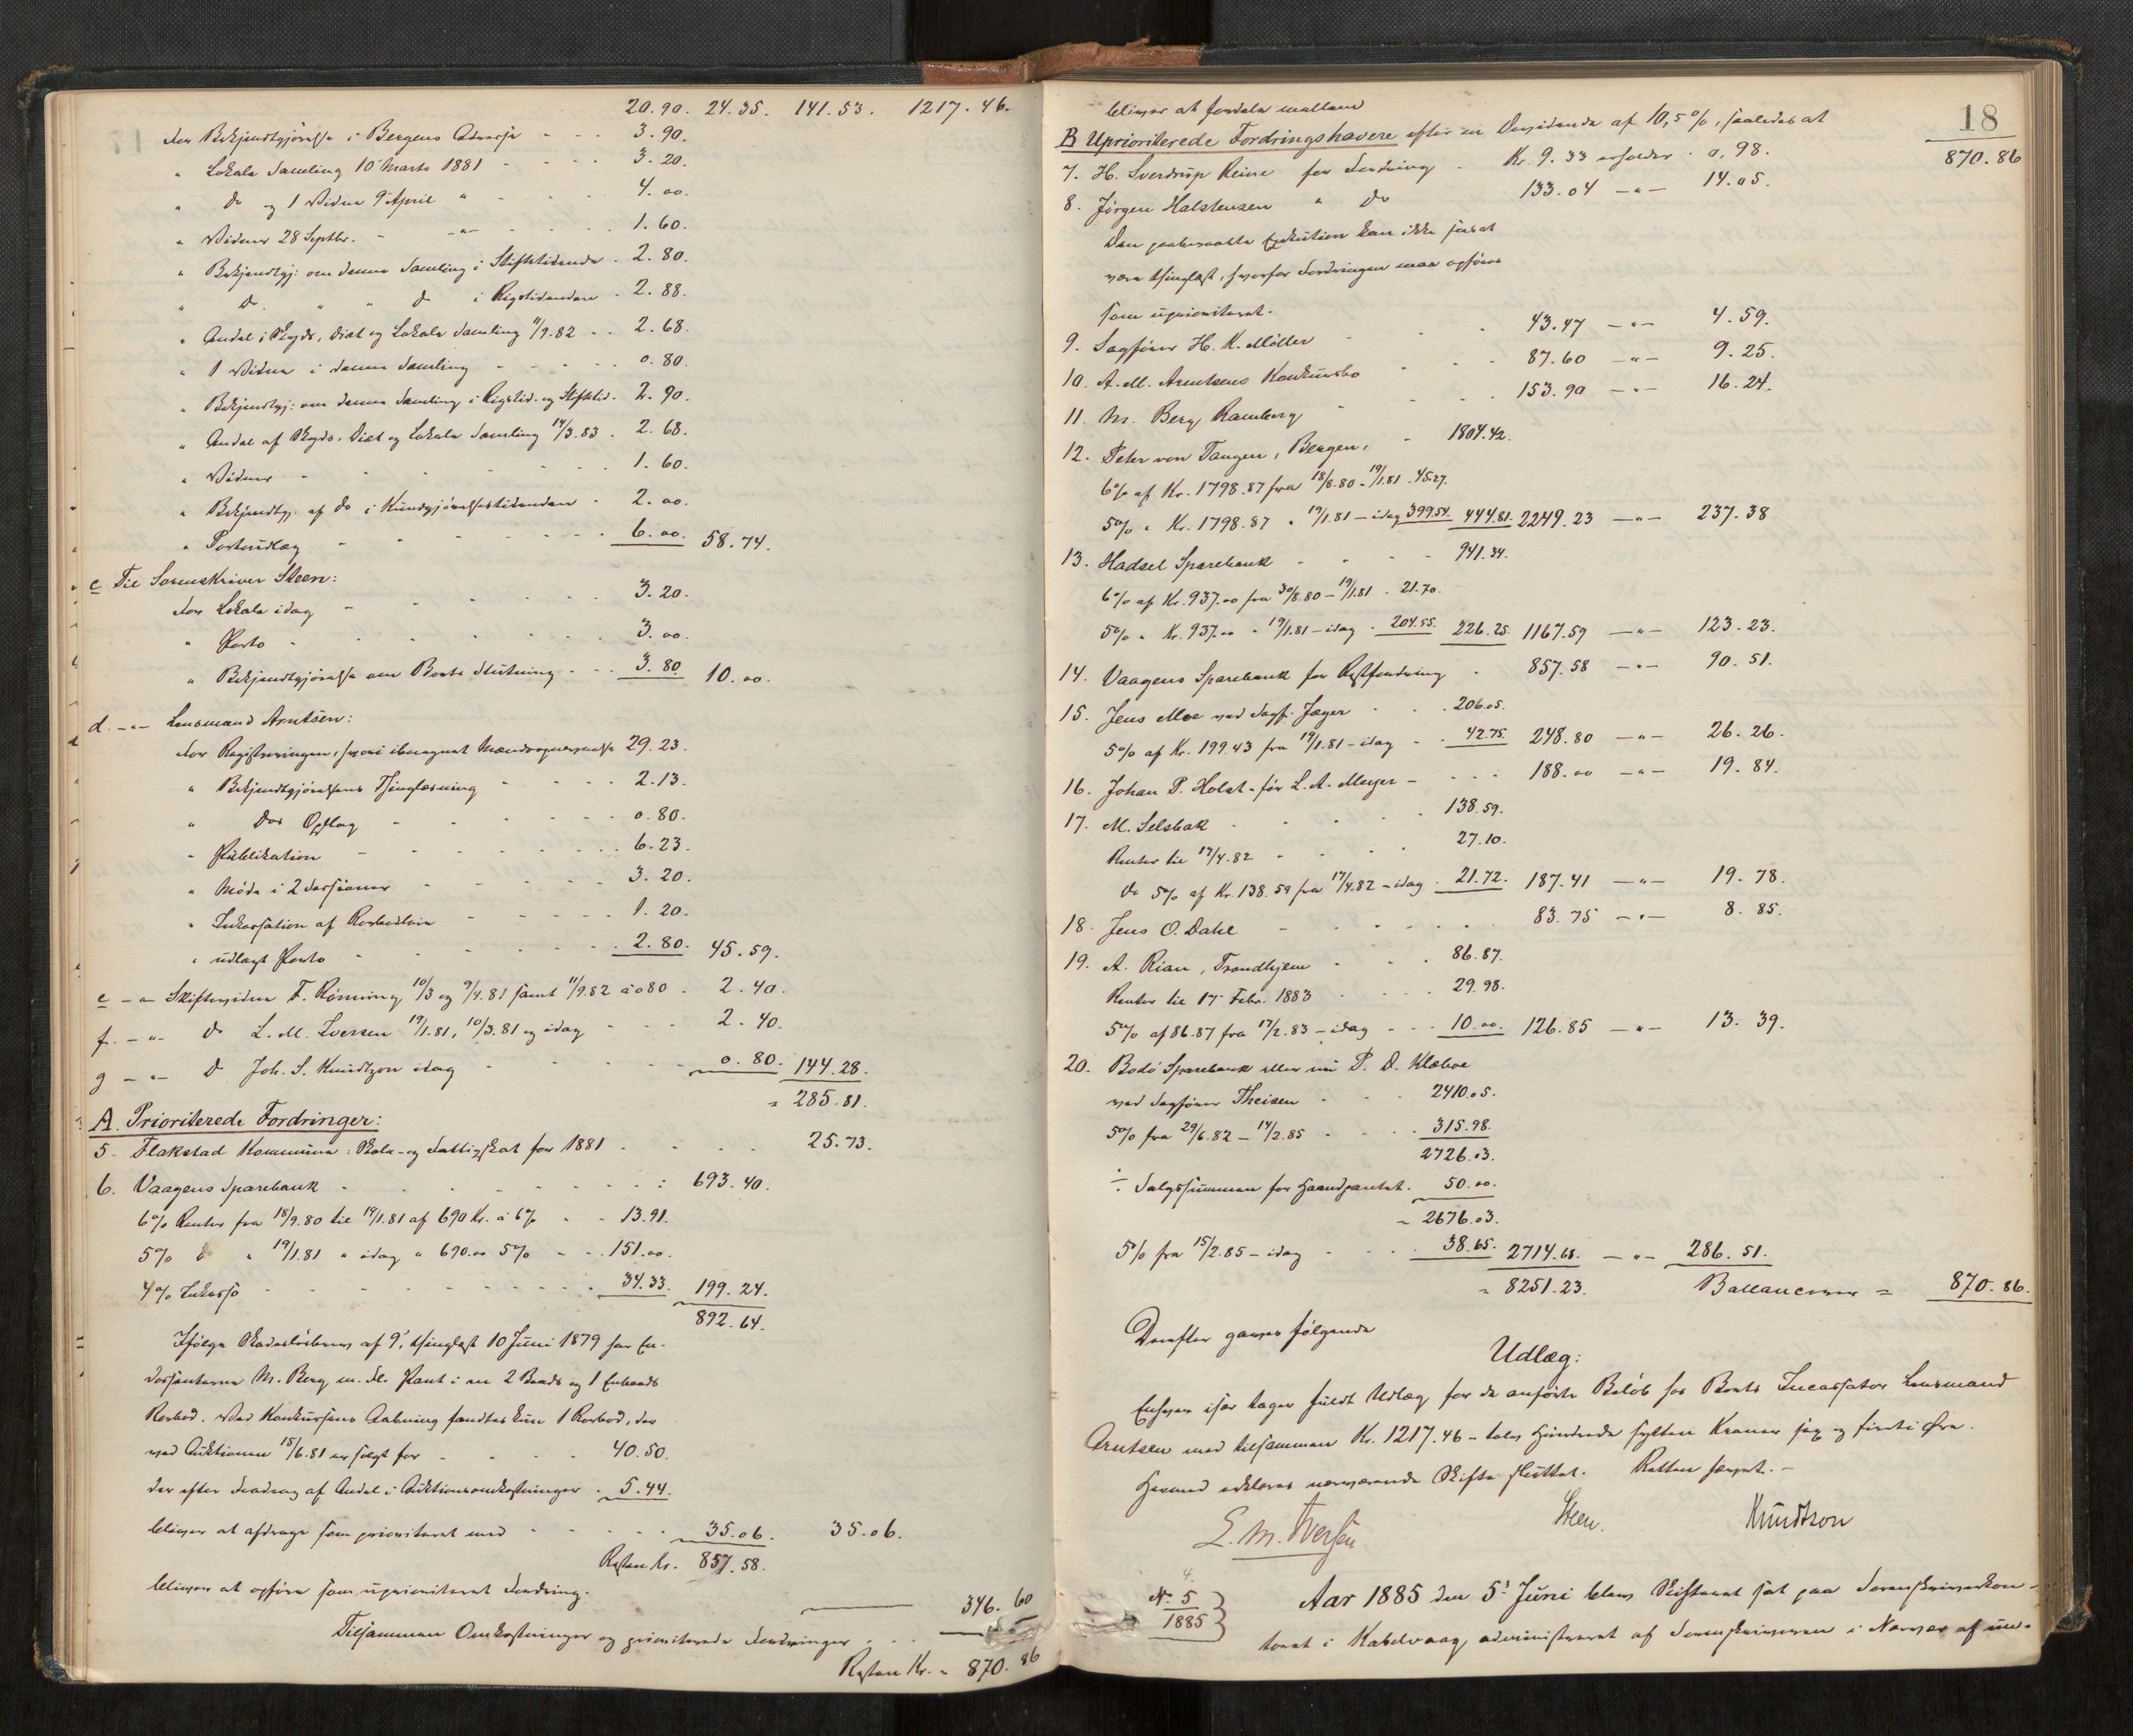 20.90. 24.35. 141.53. 1217.46.
for Bekjendtgjørelse i Bergens Adresse - - - 3.90.
" Lokale Samling 10 Marts 1881 - - - 3.20.
" Do og 1 Vidne 9 April " - - - 4.00.
" Vidner 28 Septbr. - -"- - - 1.60.
" Bekjendtgj: om denne Samling i Stiftstidende . 2.80.
" Do " " Do i Rigstidenden . 2.88.
" Andel i Skyds, Diæt og Lokale Samling 11/9.82 . . 2.68.
" 1 Vidne i denne Samling - - - 0.80.
" Bekjendtgj: om denne Samling i Rigstid. og Stiftstid. 2.90.
" Andel af Skyds, Diæt og Lokale Samling 14/3.83 . 2.68.
" Vidner - - - 1.60.
" Bekjendtgj: af Do i Kundgjørelsestidenden - 2.00.
" Portoudlæg - - - 6.00. 58.74.
c Til Sorenskriver Steen:
for Lokale idag - - - 3.20.
" Porto - - - 3.00.
" Bekjendtgjørelse om Boets Slutning - - - 3.80. 10.00.
d. -"- Lensmand Arntsen:
for Registreringen, hvori iberegnet Mændsopnævnelse 29.23.
" Bekjendtgjørelsens Thinglæsning - - - 2.13.
" Dos Opslag - - - 0.80.
" Publikation - - - 6.23.
" Møde i 2 Sessioner - - - 3.20.
" Inkassation af Rorbodleie - - - 1.20.
" udlagt Porto - - - 2.80. 45.59.
e -"- Skiftevidne F. Rönning 10/3 og 9/4.81 samt 11/9.82 à 0.80 . 2.40.
f. -"- Do L. M. Iversen 19/1.81, 10/3.81 og idag - - - 2.40.
g -"- D Joh. S. Knudtzon idag - - - 0.80. 144.28.
= 285.81.
A. Prioriterede Fordringer:
5. Flakstad Kommune: Skole- og Fattigskat for 1881 - - - 25.73.
6. Vaagens Sparebank - - - : 693.40.
6% Renter fra 18/9.80 til 19/1.81 af 690 Kr. à 6% - - 13.91.
5% Do " 19/1.81 " idag " 690.00 5% - - 151.00.
4% Inkasso - - - 34.33. 199.24.
892.64.
Ifølge Skadesløsbrev af 9', thinglæst 10 Juni 1879 har En-
dossenterne M. Berg m. fl. Pant i en 2 Bords og 1 Enbords
Rorbod. Ved Konkursens Aabning fandtes kun 1 Rorbod, der
ved Auktionen 15/6.81 er solgt for - - - 40.50.
der efter Fradrag af Andel i Auktionsomkostninger . 5.44.
bliver at afdrage som prioriteret med - - - 35.06. 35.06.
Resten Kr. 857.58.
bliver at opføre som uprioriteret Fordring.
346.60
Tilsammen Omkostninger og prioriterede Fordringer . . .
Resten Kr. = 870.86
18
bliver at fordele mellem
B Uprioriterede Fordringshavere efter en Dividende af 10,5%, saaledes at 870.86
7. H. Sverdrup Reine for Fordring - Kr. 9.33 erholder . 0,98.
8. Jörgen Halstensen " Do 133.04 -"- 14.05.
Den paaberaabte Exekution kan ikke sees at
være thinglæst, hvorfor Fordringen maa opføres
som uprioriteret.
9. Sagfører H. K. Möller - - 43.47 -"- 4.59.
10. A. M. Arentsens Konkursbo - - - 87.60 -"- 9.25.
11. M. Berg Ramberg - - - 153.90 -"- 16.24.
12. Peter von Tangen, Bergen, - 1804.42.
6% af Kr. 1798.87 fra 18/8.80 - 19/1.81 . 45.27.
5% " Kr. 1798.87 " 19/1.81 - idag 399.54. 444.81. 2249.23 -"- 237.38
13. Hadsel Sparebank - - - 941.34.
6% af Kr. 937.00 fra 30/8.80 - 19/1.81 . 21.70.
5% " Kr. 937.00 " 19/1.81 - idag . 204.55. 226.25. 1167.59 -"- 123.23.
14. Vaagens Sparebank for Restfordring - 857.58 -"- 90.51.
15. Jens Moe ved Sagf. Jæger - - . 206.05.
5% af Kr. 199.43 fra 19/1.81 - idag - . 42.75. 248.80 -"- 26.26.
16. Johan P. Holst - før L. A. Meyer - - - - 188.00 -"- 19.84.
17. M. Selsbak - - - 138.59.
Renter til 17/4.82 - - - 27.10.
Do 5% af Kr. 138.59 fra 17/4.82 - idag . 21.72. 187.41 -"- 19.78.
18. Jens O. Dahl - - - 83.75 -"- 8.85.
19. A. Rian, Trondhjem - - - 86.87.
Renter til 17 Febr. 1883 - - - 29.98.
5% af 86.87 fra 17/2.83 - idag - - - 10.00. 126.85 -"- 13.39.
20. Bodö Sparebank eller nu P. D. Klæboe
ved Sagfører Theisen - - - 2410.05.
5% fra 29/6.82 - 14/2.85 - - - 315.98.
2726.03.
÷ Salgssummen for Haandpantet. 50.00.
= 2676.03.
5% fra 15/2.85 - idag - - - 38.65. 2714.68. -"- 286.51.
= 8251.23. Ballancerer = 870.86.
Derefter gaves følgende
Udlæg:
Enhver især tager fuldt Udlæg for de anførte Beløb hos Boets Incassator Lensmand
Arntsen med tilsammen Kr. 1217.46 - tolv Hundrede sytten Kroner sex og firti Øre.
Hermed erklæres nærværende Skifte sluttet. Retten hævet. -
L. M. Iversen Steen. Knudtzon
4.
No 5
1885
Aar 1885 den 5' Juni blev Skifteret sat paa Sorenskriverkon-
toret i Kabelvaag, administreret af Sorenskriveren i Nærvær af un-